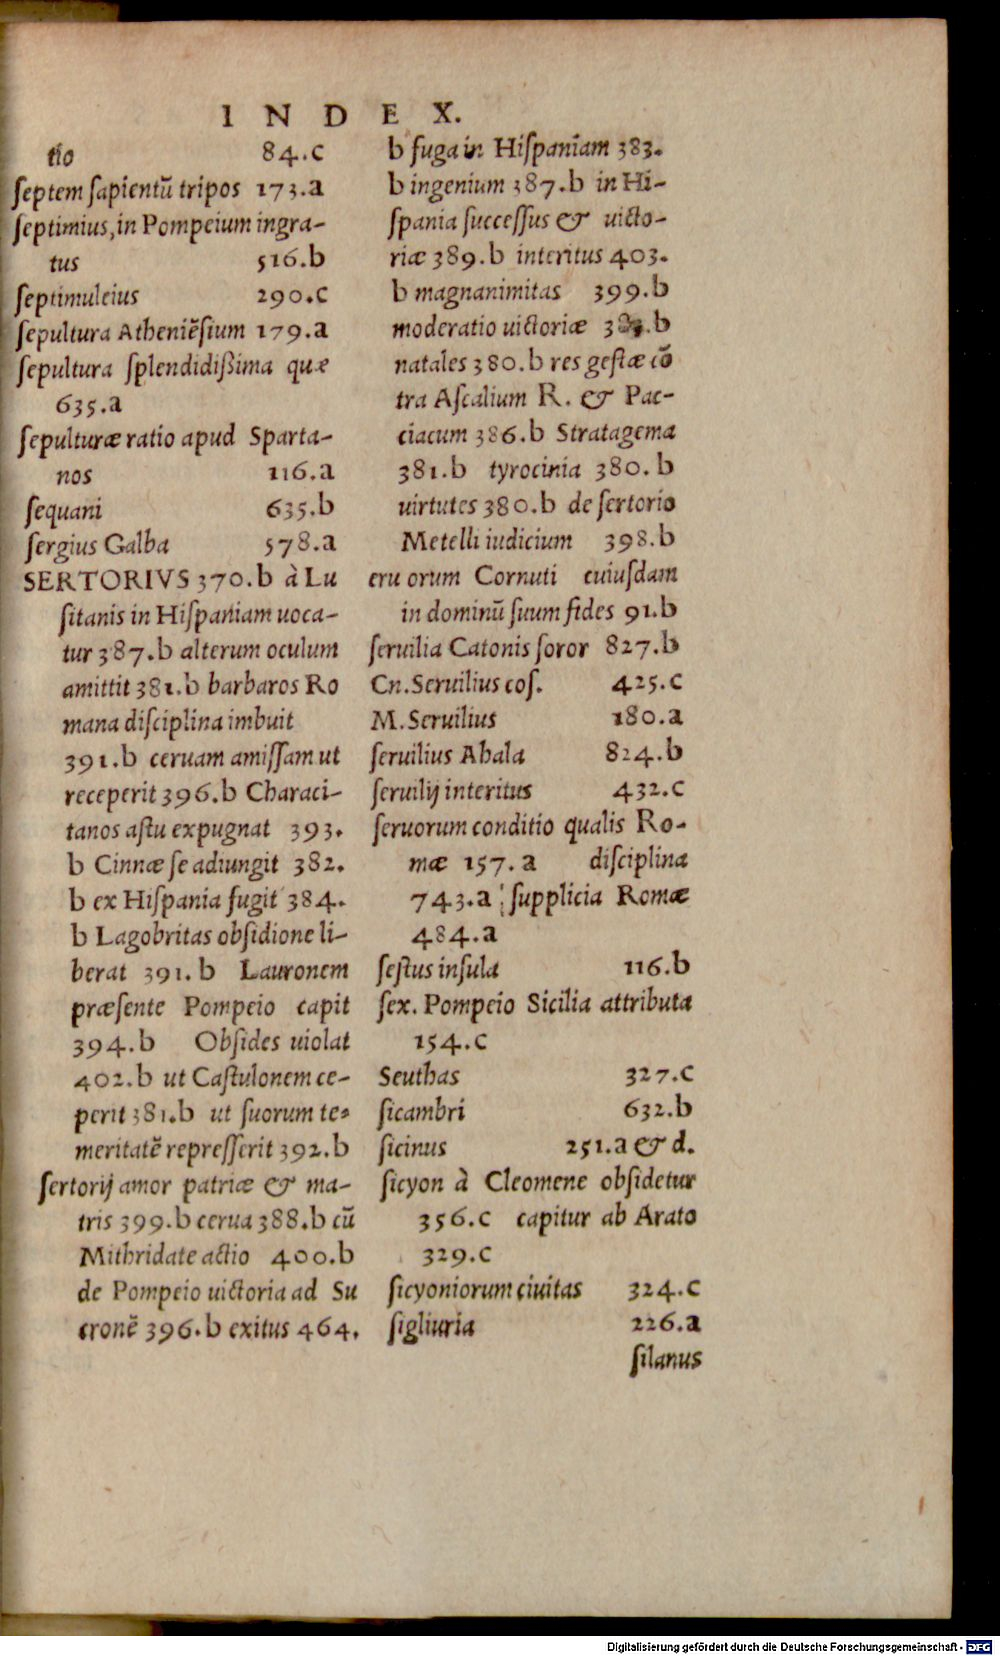 INDEX.
tio 84.c
ſeptem ſapientũ tripos 173.a
ſeptimius, in Pompeium ingra-
tus 516.b
ſeptimuleius 290.c
ſepultura Atheniẽſium 179.a
ſepultura ſplendidißima quæ
635.a
ſepulturæ ratio apud Sparta-
nos 116.a
ſequani 635.b
ſergius Galba 578.a
SERTORIVS 370.b à Lu
ſitanis in Hiſpaniam uoca-
tur 387.b alterum oculum
amittit 381.b barbaros Ro
mana diſciplina imbuit
391.b ceruam amiſſam ut
receperit 396.b Characi-
tanos aſtu expugnat 393.
b Cinnæ ſe adiungit 382.
b ex Hiſpania fugit 384.
b Lagobritas obſidione li-
berat 391.b Lauronem
præſente Pompeio capit
394.b Obſides uiolat
402.b ut Caſtulonem ce-
perit 381.b ut ſuorum te-
meritatẽ repreſſerit 392.b
ſertorij amor patriæ & ma-
tris 399.b cerua 388.b cũ
Mithridate actio 400.b
de Pompeio uictoria ad Su
cronẽ 396.b exitus 464.
b fuga in Hiſpaniam 383.
b ingenium 387.b in Hi-
ſpania ſucceſſus & uicto-
riæ 389.b interitus 403.
b magnanimitas 399.b
moderatio uictoriæ
natales 380.b res geſtæ cõ
tra Aſcalium R. & Pac-
ciacum 386.b Stratagema
381.b tyrocinia 380.b
uirtutes 380.b de ſertorio
Metelli iudicium 398.b
eru orum Cornuti cuiuſdam
in dominũ ſuum fides 91.b
ſeruilia Catonis ſoror 827.b
Cn. Seruilius coſ. 425.c
M. Seruilius 180.a
ſeruilius Ahala 824.b
ſeruilij interitus 432.c
ſeruorum conditio qualis Ro-
mæ 157.a diſciplina
743.a ſupplicia Romæ
484.a
ſeſtus inſula 116.b
ſex. Pompeio Sicilia attributa
154.c
Seuthas 327.c
ſicambri 632.b
ſicinus 251.a & d.
ſicyon à Cleomene obſidetur
356.c capitur ab Arato
329.c
ſicyoniorum ciuitas 324.c
ſigliuria 226.a
ſilanus
Digitalisierung gefördert durch die Deutsche Forschungsgemeinschaft - DFG